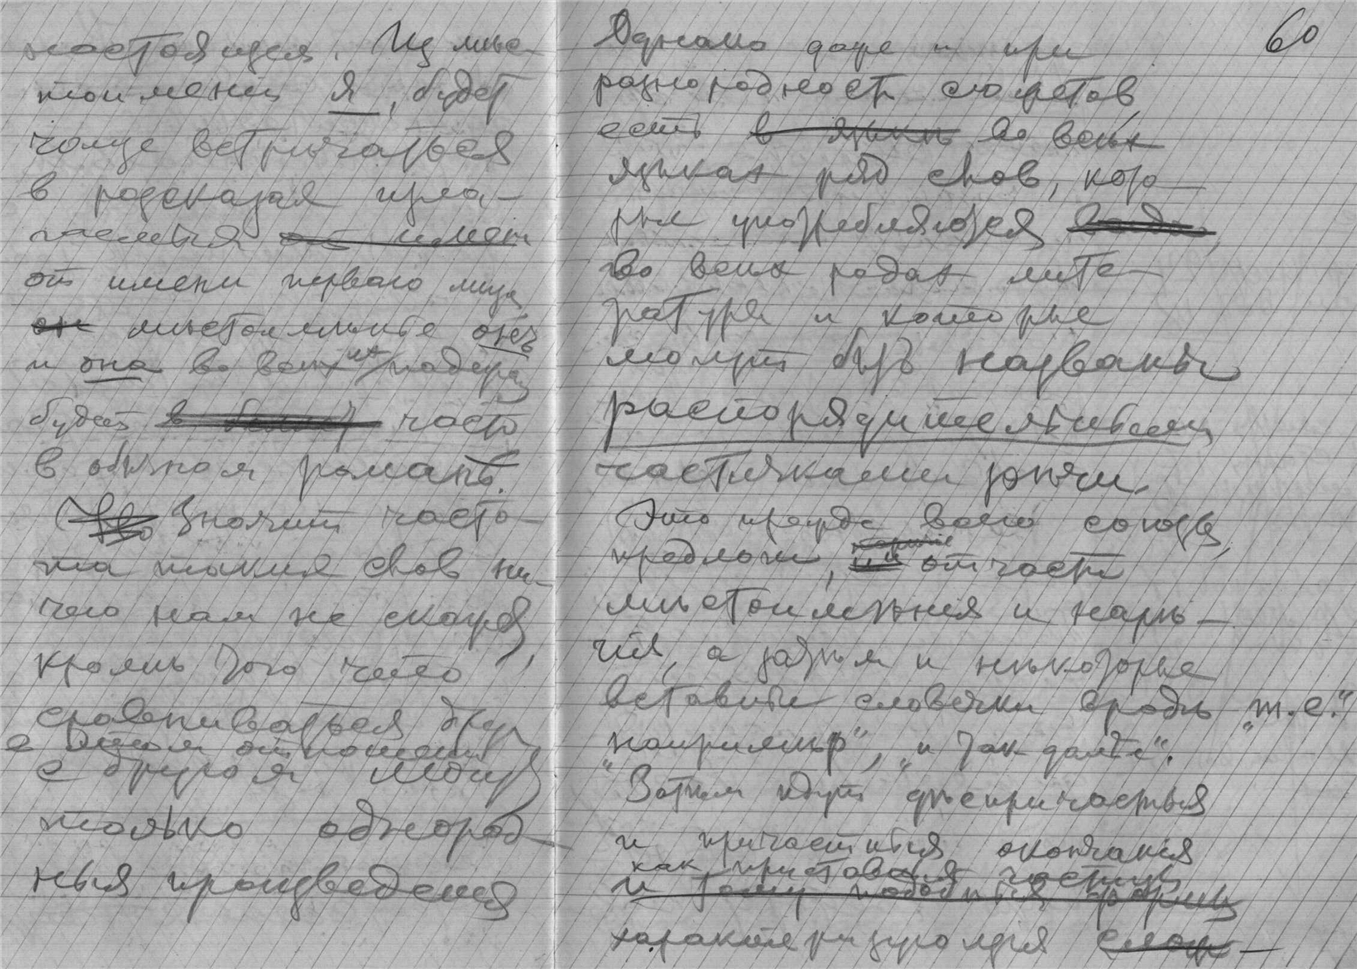 настоящая. Из мѣс-
тоименій я, будет
чаще встрѣчаться
в разсказах изла-
гаемыя от имени
от имени перваго лица,
он мѣстоименіе онъ
и она во всѣх
будет в часто
в обычном романѣ.
Это Значит часто-
та таких слов ни-
чего нам не скажет,
кромѣ того что
сравниваться друг
в этом отношении
с другом могут
только однород-
ныя произведения
60
Однако даже и при
разнородности сюжетов
есть в языкѣ во всѣх
языках ряд слов, кото-
рые употребляются
во всѣх родах лите-
ратуры и которые
могут быть названы
распорядительными
частичками рѣчи.
Это прежде всего союзы,
предлоги, отчасти
мѣстоимѣния и нарѣ-
чия, а затѣм и нѣкоторые
вставные словечки вродѣ „т.е."
„напримѣр", „и так далѣе".
Затѣм идут дѣепричастныя
и причастныя окончания
как приставки частицы
и тому подобныя формы
характеризующія слож-